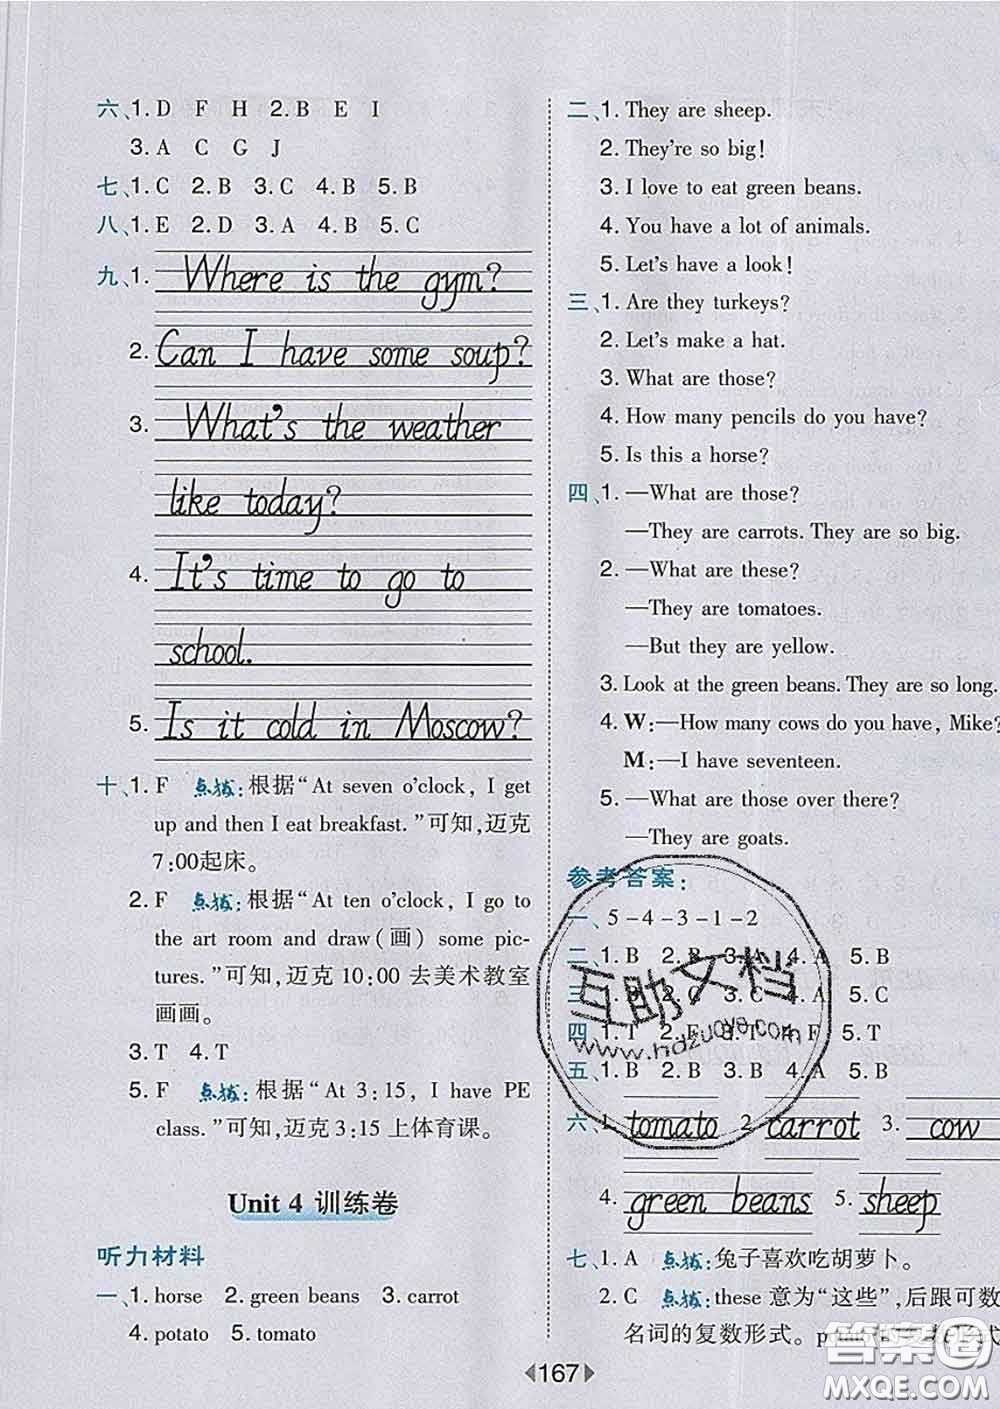 六、1. D F H 2. B E I
3. A C G J
七、1. C 2. B 3. C 4. B 5. B
八、1. E 2. D 3. A 4. B 5. C
九、1. Where is the gym?
2. Can I have some soup?
3. What's the weather
like today?
4. It's time to go to
school.
5. Is it cold in Moscow?
十、1. F 点拨:根据“At seven o'clock, I get
up and then I eat breakfast.”可知,迈克
7:00起床。
2. F 点拨:根据“At ten o'clock, I go to
the art room and draw(画) some pic-
tures.”可知,迈克 10:00 去美术教室
画画。
3. T 4. T
5. F 点拨:根据“At 3:15, I have PE
class.”可知,迈克 3:15 上体育课。
Unit 4 训练卷
听力材料
一、1. horse 2. green beans 3. carrot
4. potato 5. tomato
二、1. They are sheep.
2. They're so big!
3. I love to eat green beans.
4. You have a lot of animals.
5. Let's have a look!
三、1. Are they turkeys?
2. Let's make a hat.
3. What are those?
4. How many pencils do you have?
5. Is this a horse?
四、1. —What are those?
—They are carrots. They are so big.
2. —What are these?
—They are tomatoes.
—But they are yellow.
3. Look at the green beans. They are so long.
4. W:—How many cows do you have, Mike?
M:—I have seventeen.
5. —What are those over there?
—They are goats.
参考答案:
一、5-4-3-1-2
二、1. B 2. B 3. A 4. A 5. B
三、1. B 2. C 3. C 4. A 5. C
四、1. T 2. F 3. T 4. F 5. T
五、1. B 2. B 3. B 4. A 5. B
六、1. tomato 2. carrot 3. cow
4. green beans 5. sheep
七、1. A 点拨:兔子喜欢吃胡萝卜。
2. C 点拨:these 意为“这些”,后跟可数
名词的复数形式。
167
互助文档
www.hdzuoye.com
答案圈
MXQE.COM